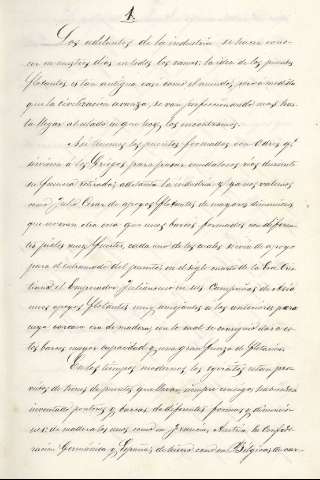 1.
Los adelantos de la industria se hacen cono-
cer en nuestros dias en todos los ramos: la idea de los puentes
flotantes es tan antigua casi como el mundo, pero a medida
que la civilizacion avanza, se van perfeccionando mas has-
ta llegar al estado en que hoy los encontramos.
Asi tenemos los puentes formados con Odres qe
sirvieron á los Griegos para pasar caudalosos rios durante
su famosa retirada; adelanta la industria y ya nos valemos
como Julio Cesar de apoyos flotantes de mayores dimensiones
que no eran otra cosa que unas barcas formadas con diferen-
tes pieles muy fuertes, cada uno de los cuales servia de apoyo
para el entramado del puente: en el siglo cuarto de la Era Cris-
tiana el Emperador Julian en sus Campañas de
unos apoyos flotantes muy semejantes a los anteriores pero
cuya corcasa era de madera, con lo cual se consiguió dar a es-
tos barcos mayor capacidad y una gran fuerza de flotacion.
En los tiempos modernos los egercitos estan pro-
vistos de trenes de puentes que llevan siempre consigo habiendo
inventado pontones y barcas de diferentes formas y dimensio-
nes: de madera los unos como en Francia, Austria, la Confede-
racion Germánica y España; de hierro como en Bélgica: de cau-